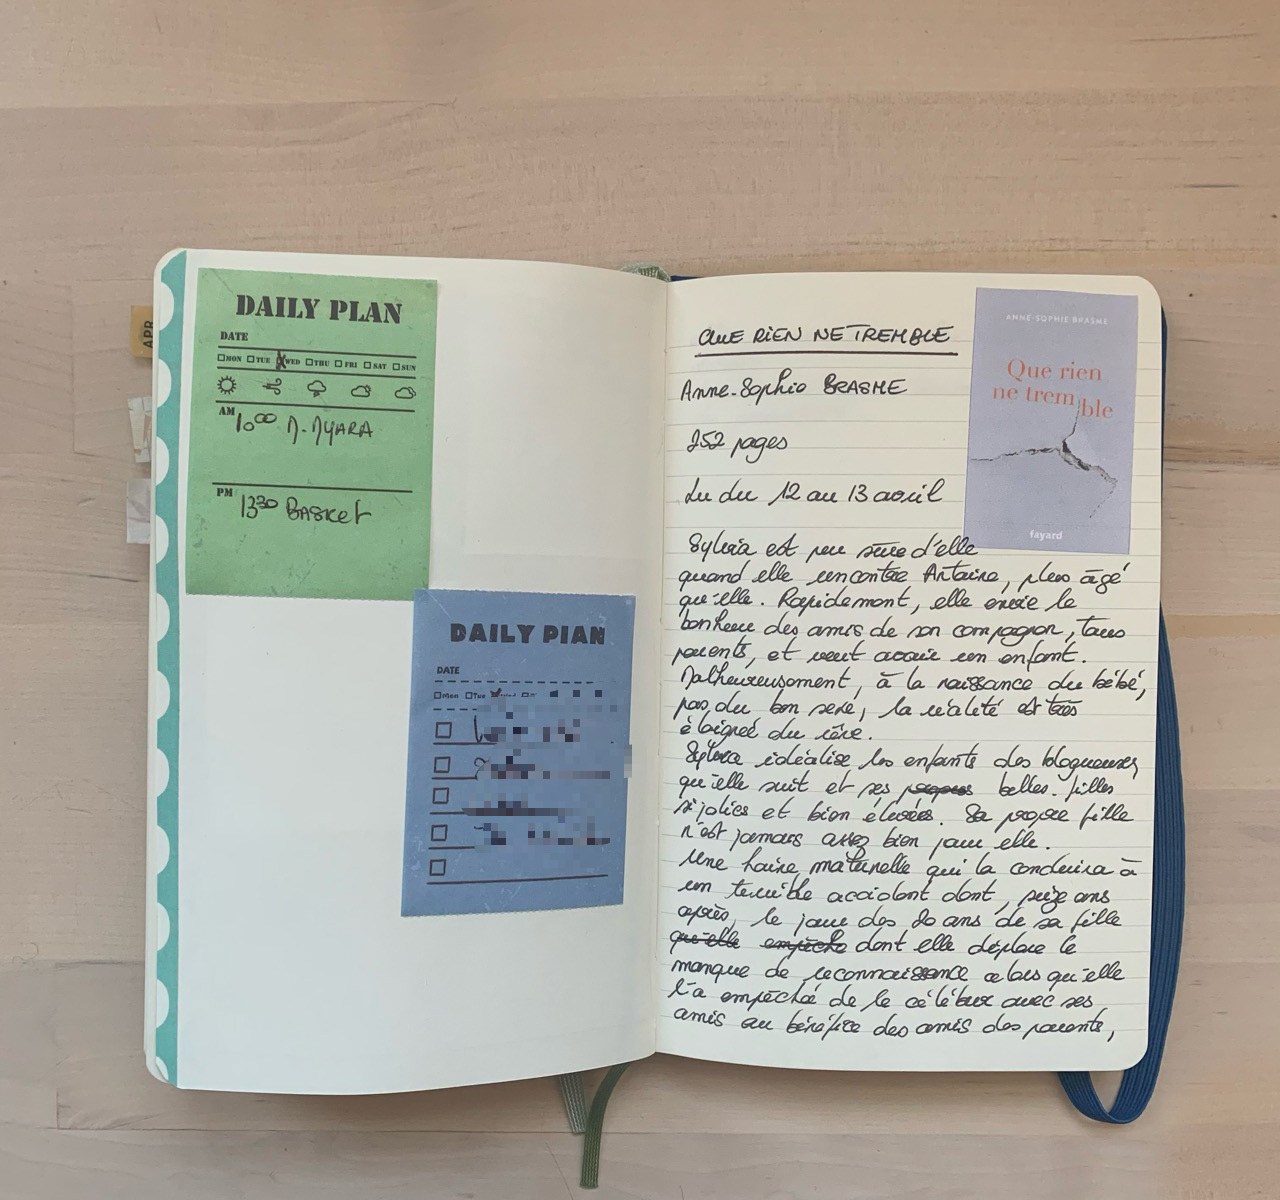 APR
DAILY PLAN
DATE
MON TUE WED THU FRI SAT SUN
AM
10⁰⁰ N. NYARA
PM
13³⁰ BASKET
DAILY PLAN
DATE
Mon Tue
QUE RIEN NE TREMBLE
Anne-Sophie BRASME
252 pages
Lu du 12 au 13 avril
ANNE-SOPHIE BRASME
Que rien
ne tremble
fayard
Sylvia est peu sûre d'elle
quand elle rencontre Antoine, plus âgé
qu'elle. Rapidement, elle envie le
bonheur des amis de son compagnon, tous
parents, et veut avoir un enfant.
Malheureusement, à la naissance du bébé,
pas du bon sexe, la réalité est très
éloignée du rêve.
Sylvia idéalise les enfants des blogueuses
qu'elle suit et ses belles-filles
si jolies et bien élevées. Sa propre fille
n'est jamais assez bien pour elle.
Une haine maternelle qui la conduira à
un terrible accident dont, seize ans
après, le jour des 20 ans de sa fille
qu'elle empêche dont elle déplore le
manque de reconnaissance alors qu'elle
l'a empêchée de le célébrer avec ses
amis au bénéfice des amis des parents,